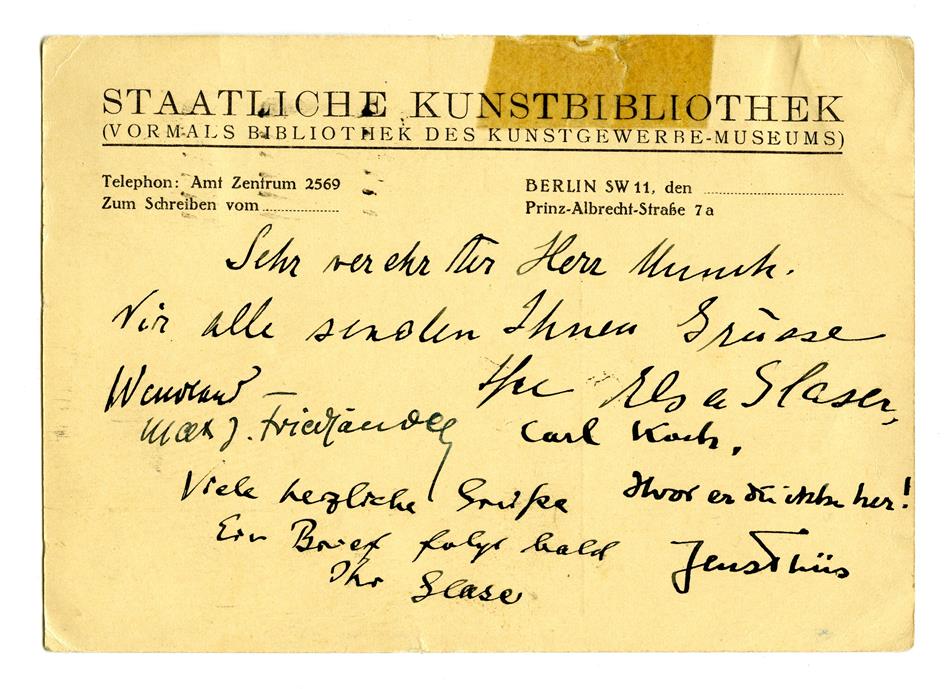 STAATLICHE KUNSTBIBLIOTHEK
(VORMALS BIBLIOTHEK DES KUNSTGEWERBE-MUSEUMS)
Telephon: Amt Zentrum 2569
Zum Schreiben vom
BERLIN SW 11, den
Prinz-Albrecht-Straße 7a
Sehr verehrter Herr Munch.
Wir alle senden Ihnen Grüsse
Ihre Elsa Glaser,
Wendland
Max J. Friedländer
Carl Koch,
Viele herzliche Grüße
Ein Brief folgt bald
Ihr Glaser
Hvor er du ikke her!
Jens Thiis